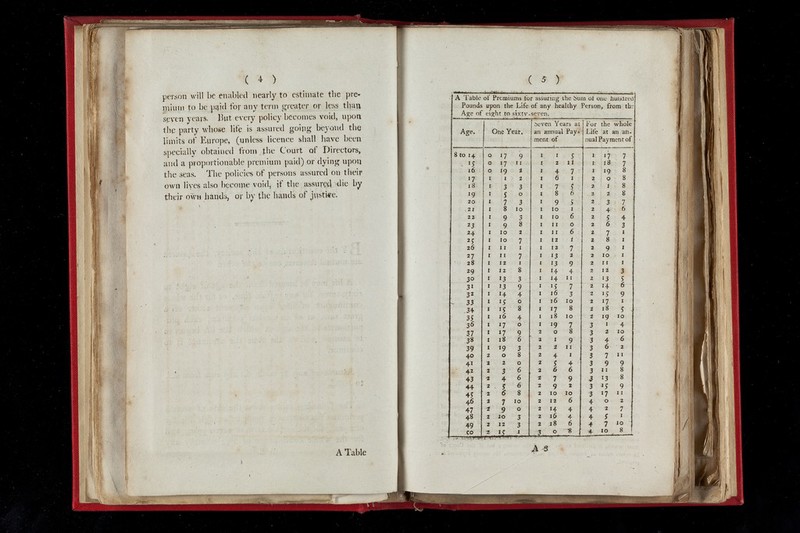 ( 4 )
person will be enabled nearly to estimate the pre-
mium to be paid for any term greater or less than
seven years. But every policy becomes void, upon
the party whose life is assured going beyond the
limits of Europe, (unless licence shall have been
specially obtained from the Court of Directors,
and a proportionable premium paid) or dying upon
the seas. The policies of persons assured on their
own lives also become void, if the assured die by
their own hands, or by the hands of justice.
A Table
( 5 )
A Table of Premiums for assuring the Sum of one hundred
Pounds upon the Life of any healthy Person, from the
Age of eight to sixty-seven.
Age. One Year. Seven Years at an annual Pay-ment of For the whole Life at an an-nual Payment of
8 to 14 0 17 9 1 1 5 1 17 7
15 0 17 11 1 2 11 1 18 7
16 0 19 2 1 4 7 1 19 8
17 1 1 2 1 6 1 2 0 8
18 1 3 3 1 7 5 2 1 8
19 1 5 0 1 8 6 2 2 8
20 1 7 3 1 9 5 2 3 7
21 1 8 10 1 10 1 2 4 6
22 1 9 3 1 10 6 2 5 4
23 1 9 8 1 11 0 2 6 3
24 1 10 2 1 11 6 2 7 1
25 1 10 7 1 12 1 2 8 1
26 1 11 1 1 12 7 2 9 1
27 1 11 7 1 13 2 2 10 1
28 1 12 1 1 13 9 2 11 1
29 1 12 8 1 14 4 2 12 3
30 1 13 3 1 14 11 2 13 5
31 1 13 9 1 15 7 2 14 6
32 1 14 4 1 16 3 2 15 9
33 1 15 0 1 16 10 2 17 1
34 1 15 8 1 17 8 2 18 5
35 1 16 4 1 18 10 2 19 10
36 1 17 0 1 19 7 3 1 4
37 1 17 9 2 0 8 3 2 10
38 1 18 6 2 1 9 3 4 6
39 1 19 3 2 2 11 3 6 2
40 2 0 8 2 4 1 3 7 11
41 2 2 0 2 5 4 3 9 9
42 2 3 6 2 6 6 3 11 8
43 2 4 6 2 7 9 3 13 8
44 2 5 6 2 9 2 3 15 9
45 2 6 8 2 10 10 3 17 11
46 2 7 10 2 12 6 4 0 2
47 2 9 0 2 14 4 4 2 7
48 2 10 3 2 16 4 4 5 1
49 2 12 3 2 18 6 4 7 10
50 2 15 1 3 0 8 4 10 8
A 3